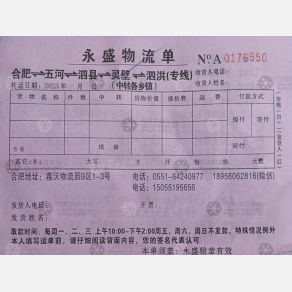 永盛物流单
NoA 0176550
合肥⇌五河⇌泗县⇌灵壁⇌泗洪(专线)
(中转各乡镇)
收货人电话:
收货人签名:
托运日期:2023年 月 日
货物名称 件数 中转 货物价值 保价费 运费 付款方式
提付 现付
回付
货号: 纸袋
其它: 万 仟 佰 拾 元
合肥地址:鑫沃物流园B区1-3号
电话:0551-64240977 18956062816(微信)
电话:15055195656
发货人电话:
发货人签名:
取款时间:每周一、二、三上午10:00-下午2:00周五、周六、周日不发款,特殊情况例外
本人填写运单前,请仔细阅读背面内容,您的签名代表认可
本单须盖:永盛验章有效